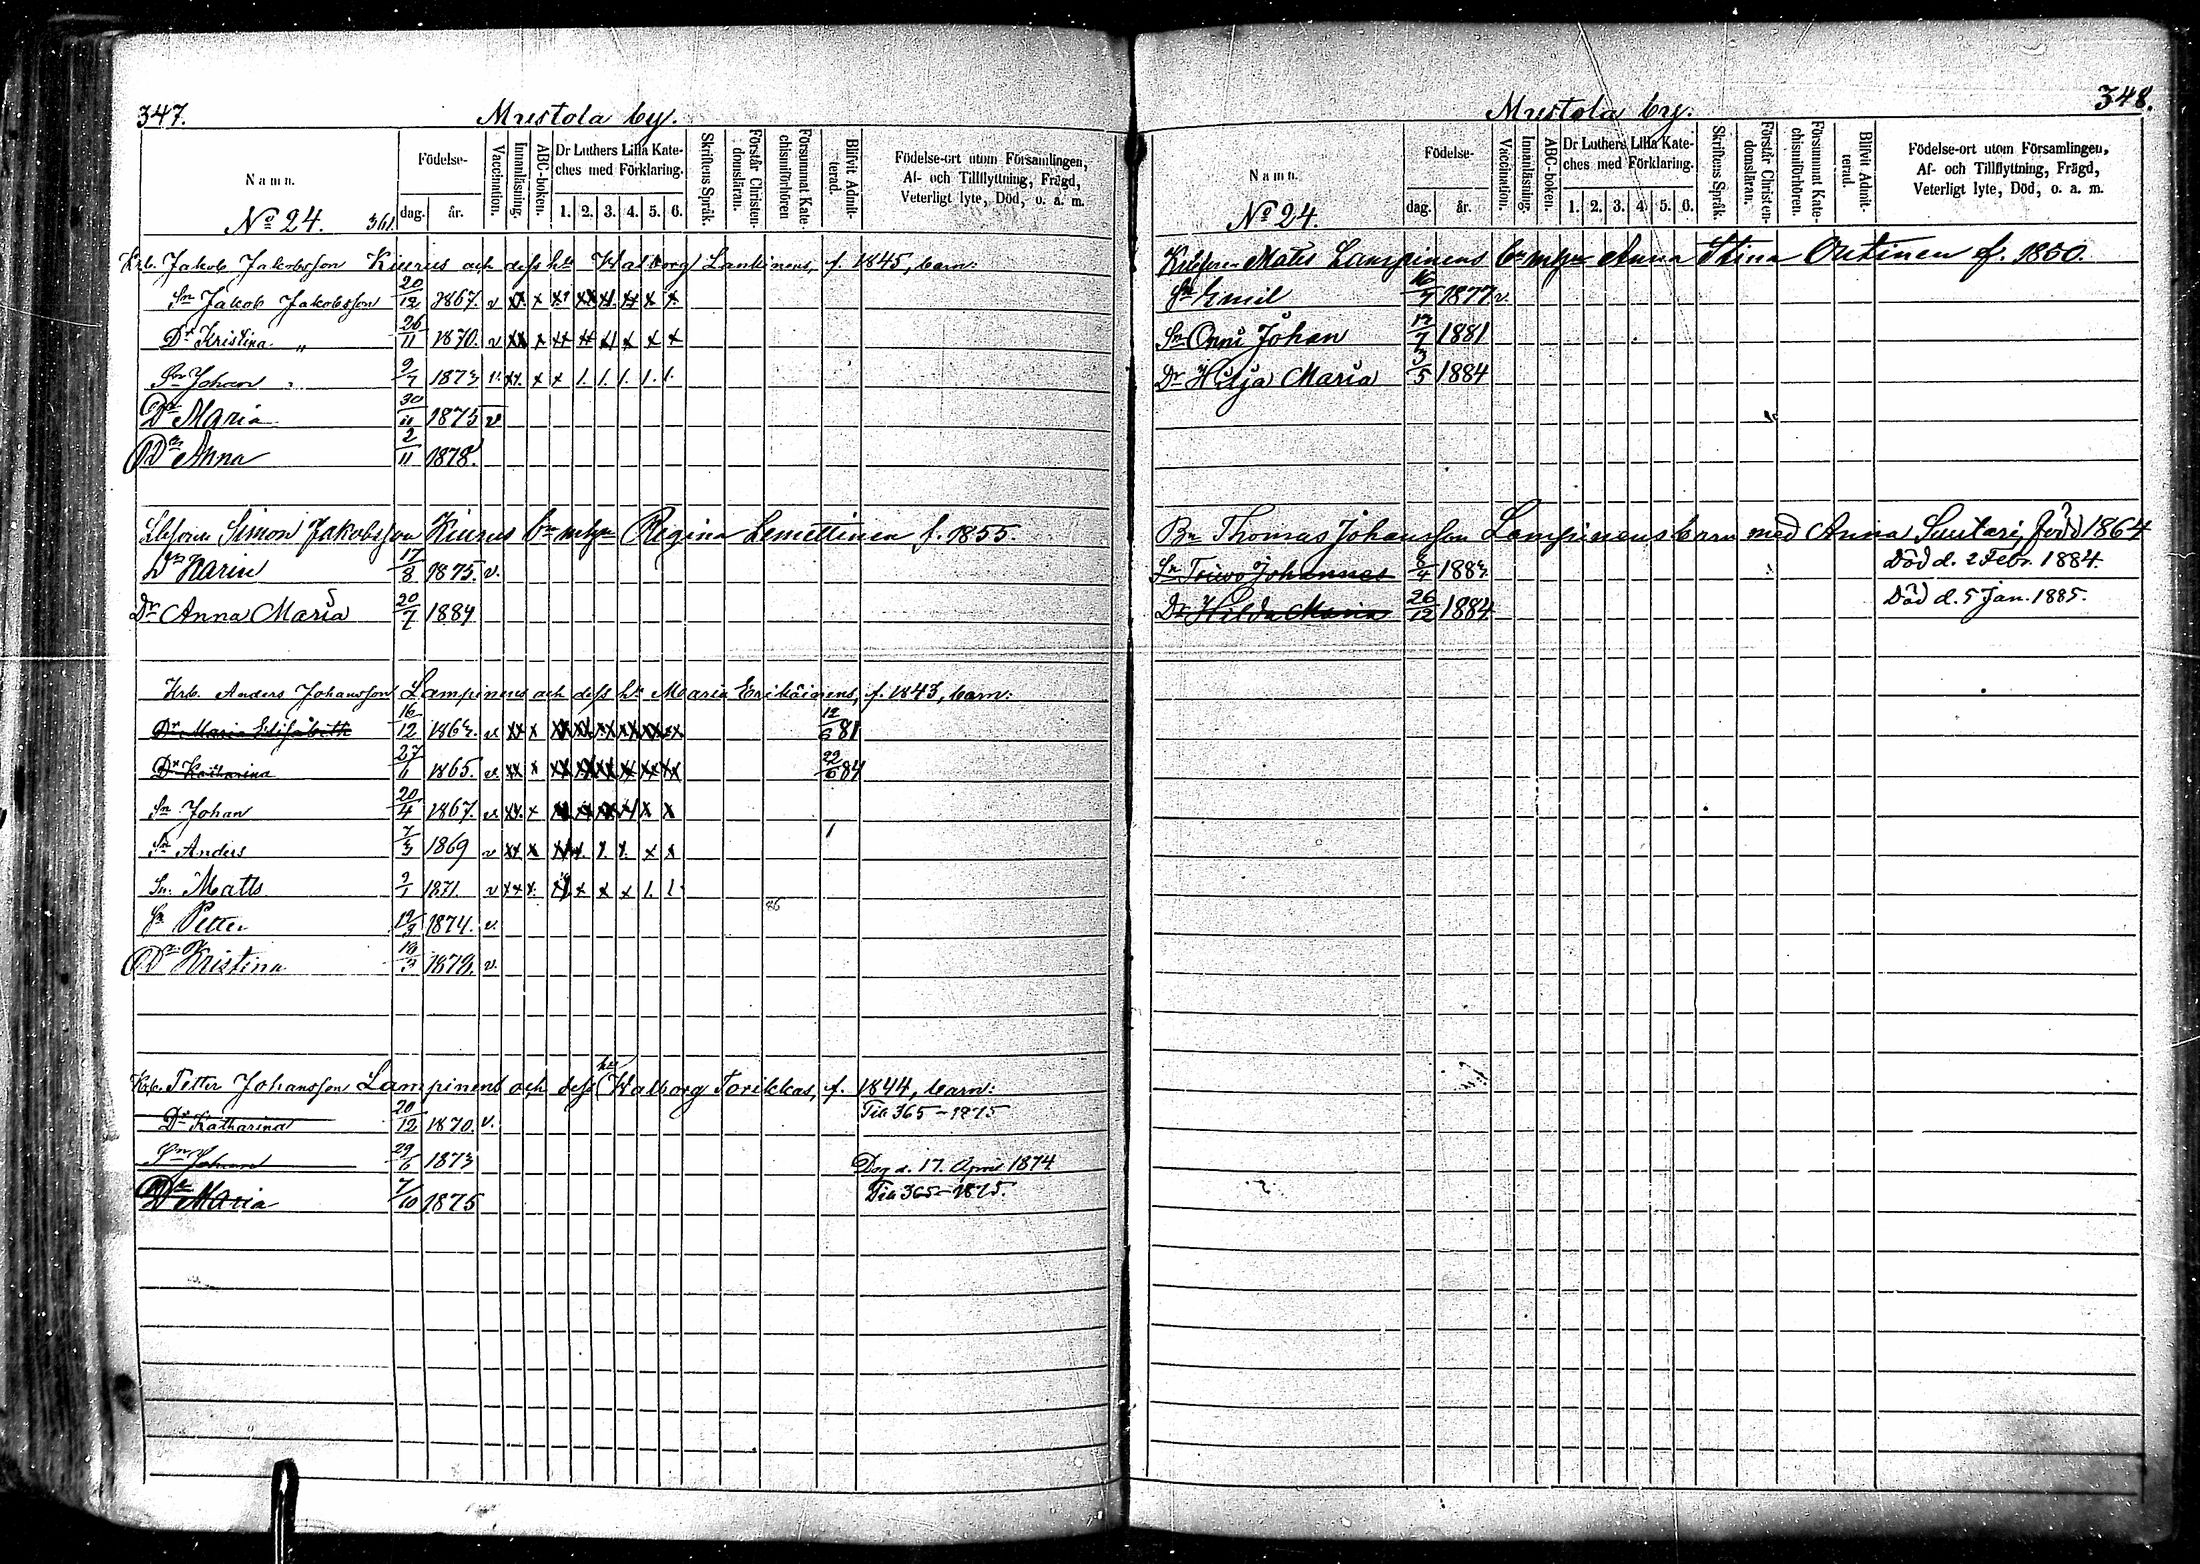 347.
Mustola by.
Namn.
Födelse-
dag. år.
Vaccination.
Innanläsning.
ABC-boken.
Dr Luthers Lilla Kate-
ches med Förklaring.
1. 2. 3. 4. 5. 6.
Skriftens Språk.
Förstår Christen-
domsläran.
Försummat Kate-
chismiförhören
Blifvit Admit-
terad.
Födelse-ort utom Församlingen,
Af- och Tillflyttning, Frägd,
Veterligt lyte, Död, o. a. m.
No 24. 361.
Krb. Jakob Jakobsson Kiurus och dess hu Walborg Lankinens, f. 1845, barn:
Sn Jakob Jakobsson 20/12 1867. v xx x
Dr Kristina " 26/11 1870. v xx x
Sn Johan " 9/7 1873 v. xx. x x 1. 1. 1. 1. 1.
Dr Maria 30/11 1875 v
Dr Anna 2/11 1878.
Simon Jakobsson Kiurus bn m hu Regina Lemettinen f. 1855.
Dr Karin 17/8 1875. v.
Dr Anna Maria 20/7 1884
Krb. Anders Johansson Lampinens och dess hu Maria Erikäinens, f. 1843, barn:
Dr Maria Elisabeth 16/12 1863. v. xx x 12/6 81
Dr Katharina 27/6 1865. v. xx x 22/6 84
Sn Johan 20/4 1867. v xx. x
Sn Anders 7/3 1869 v xx x
Sn. Matts 9/1 1871. v xx x.
86
Sn Petter 12/3 1874. v.
Dr Kristina 19/3 1878. v.
Krb. Petter Johansson Lampinens och dess hu Walborg Torikkas, f. 1844, barn:
Dr Katharina 20/12 1870. v. Till 365 – 1875
Sn Johan 29/6 1873 Dog d. 17. April 1874
Dr Maria 7/10 1875 Till 365 – 1875.
348.
Mustola by.
Namn.
Födelse-
dag. år.
Vaccination.
Innanläsning.
ABC-boken.
Dr Luthers Lilla Kate-
ches med Förklaring.
1. 2. 3. 4. 5. 6.
Skriftens Språk.
Förstår Christen-
domsläran.
Försummat Kate-
chismiförhören.
Blifvit Admit-
terad.
Födelse-ort utom Församlingen,
Af- och Tillflyttning, Frägd,
Veterligt lyte, Död, o. a. m.
No 24.
Mats Lampinens bn m hu Anna Stina Outinen f. 1850.
Sn Emil 16/7 1877 v.
Sn Onni Johan 17/7 1881
Dr Hilja Maria 3/5 1884
Bn Thomas Johansson Lampinens barn med Anna Suutari, född 1864
Sn Toivo Johannes 8/4 1883. Död d. 2 Febr. 1884.
Dr Hilda Maria 26/12 1884 Död d. 5 Jan. 1885.